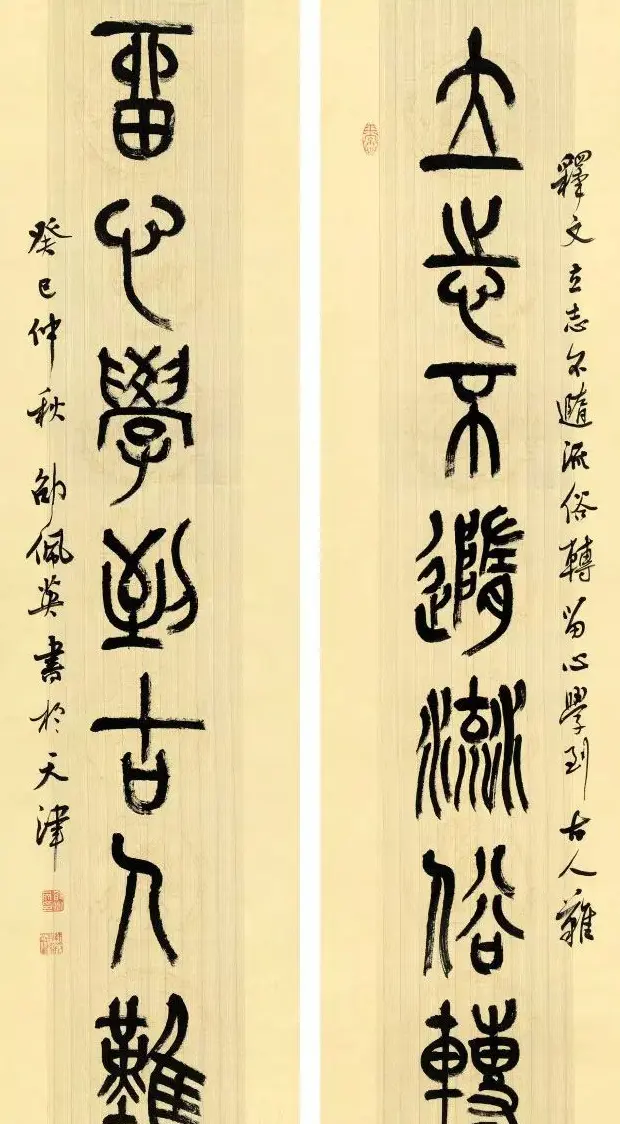 釋文立志不隨流俗轉留心學到古人難
立志不隨流俗轉
留心學到古人難
癸巳仲秋邵佩英書於天津